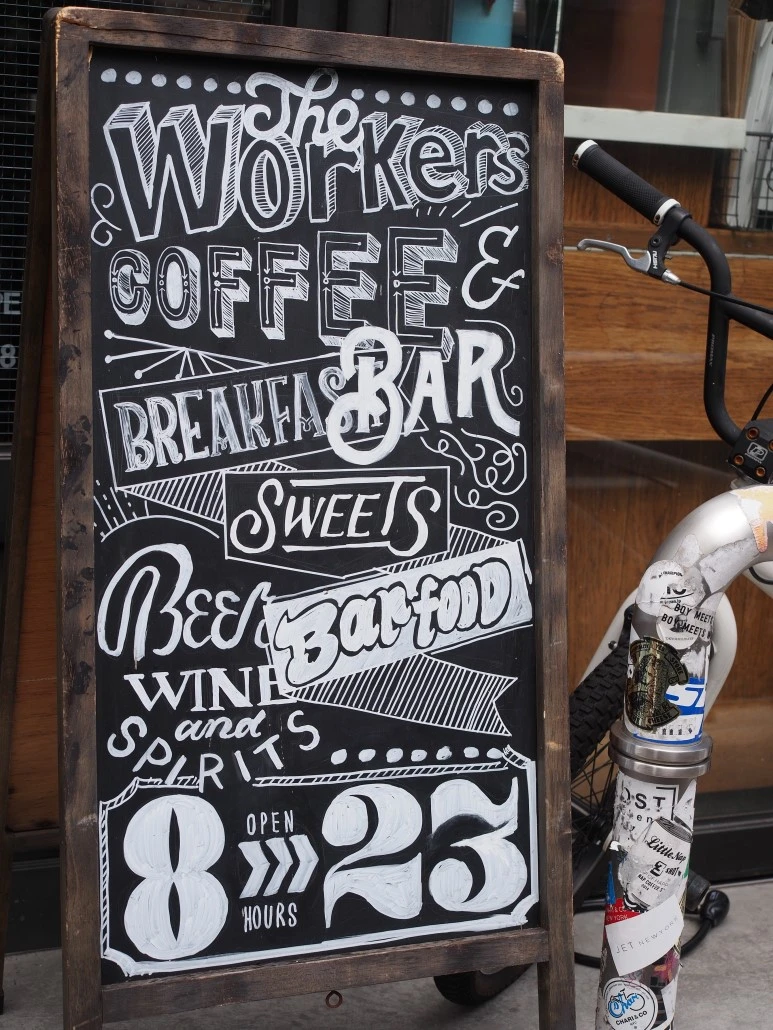 The
Workers
COFFEE &
BREAKFAST BAR
SWEETS
Beer
Bar food
WINE
and
SPIRITS
8 OPEN HOURS 23
BOY MEETS
BOY MEETS
Little Nap
JET NEWYORK
CHARI & CO